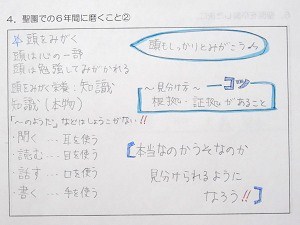 4. 聖園での6年間に磨くこと②
頭をみがく
頭もしっかりとみがこう
頭は心の一部
頭は勉強してみがかれる
頭をみがく栄養:知識
知識(本物)
〜見分け方〜
コツ
根拠・証拠があること
「〜のようだ」などはしょうこがない!!
・聞く…耳を使う
・読む…目を使う
・話す…口を使う
・書く…手を使う
本当なのかうそなのか
見分けられるように
なろう!!